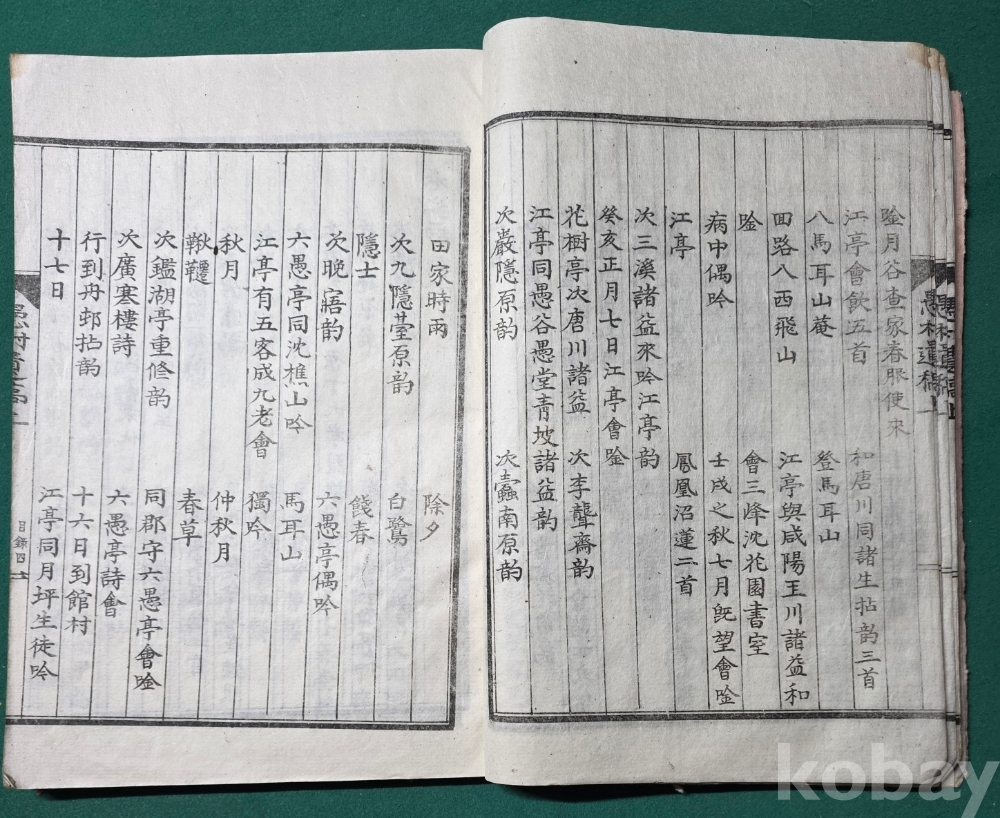 愚村遺稿
唫月谷査家春服使來
江亭會飲五首 和唐川同諸生拈韵三首
入馬耳山菴 登馬耳山
回路入西飛山 江亭與咸陽玉川諸益和
唫 會三峰沈花園書室
病中偶吟 壬戌之秋七月旣望會唫
江亭 鳳凰沼蓮二首
次三溪諸益來吟江亭韵
癸亥正月七日江亭會唫
花樹亭次唐川諸益 次李聾齋韵
江亭同愚谷愚堂靑坡諸益韵
次嚴隱原韵 次蠹南原韵
田家時雨 除夕
次九隱莹原韵 白鷺
隱士 餞春
次晩寤韵 六愚亭偶吟
六愚亭同沈樵山吟 馬耳山
江亭有五客成九老會 獨吟
秋月 仲秋月
鞦韆 春草
次鑑湖亭重修韵 同郡守六愚亭會唫
次廣寒樓詩 六愚亭詩會
行到丹邨拈韵 十六日到館村
十七日 江亭同月坪生徒吟
目錄四
kobay